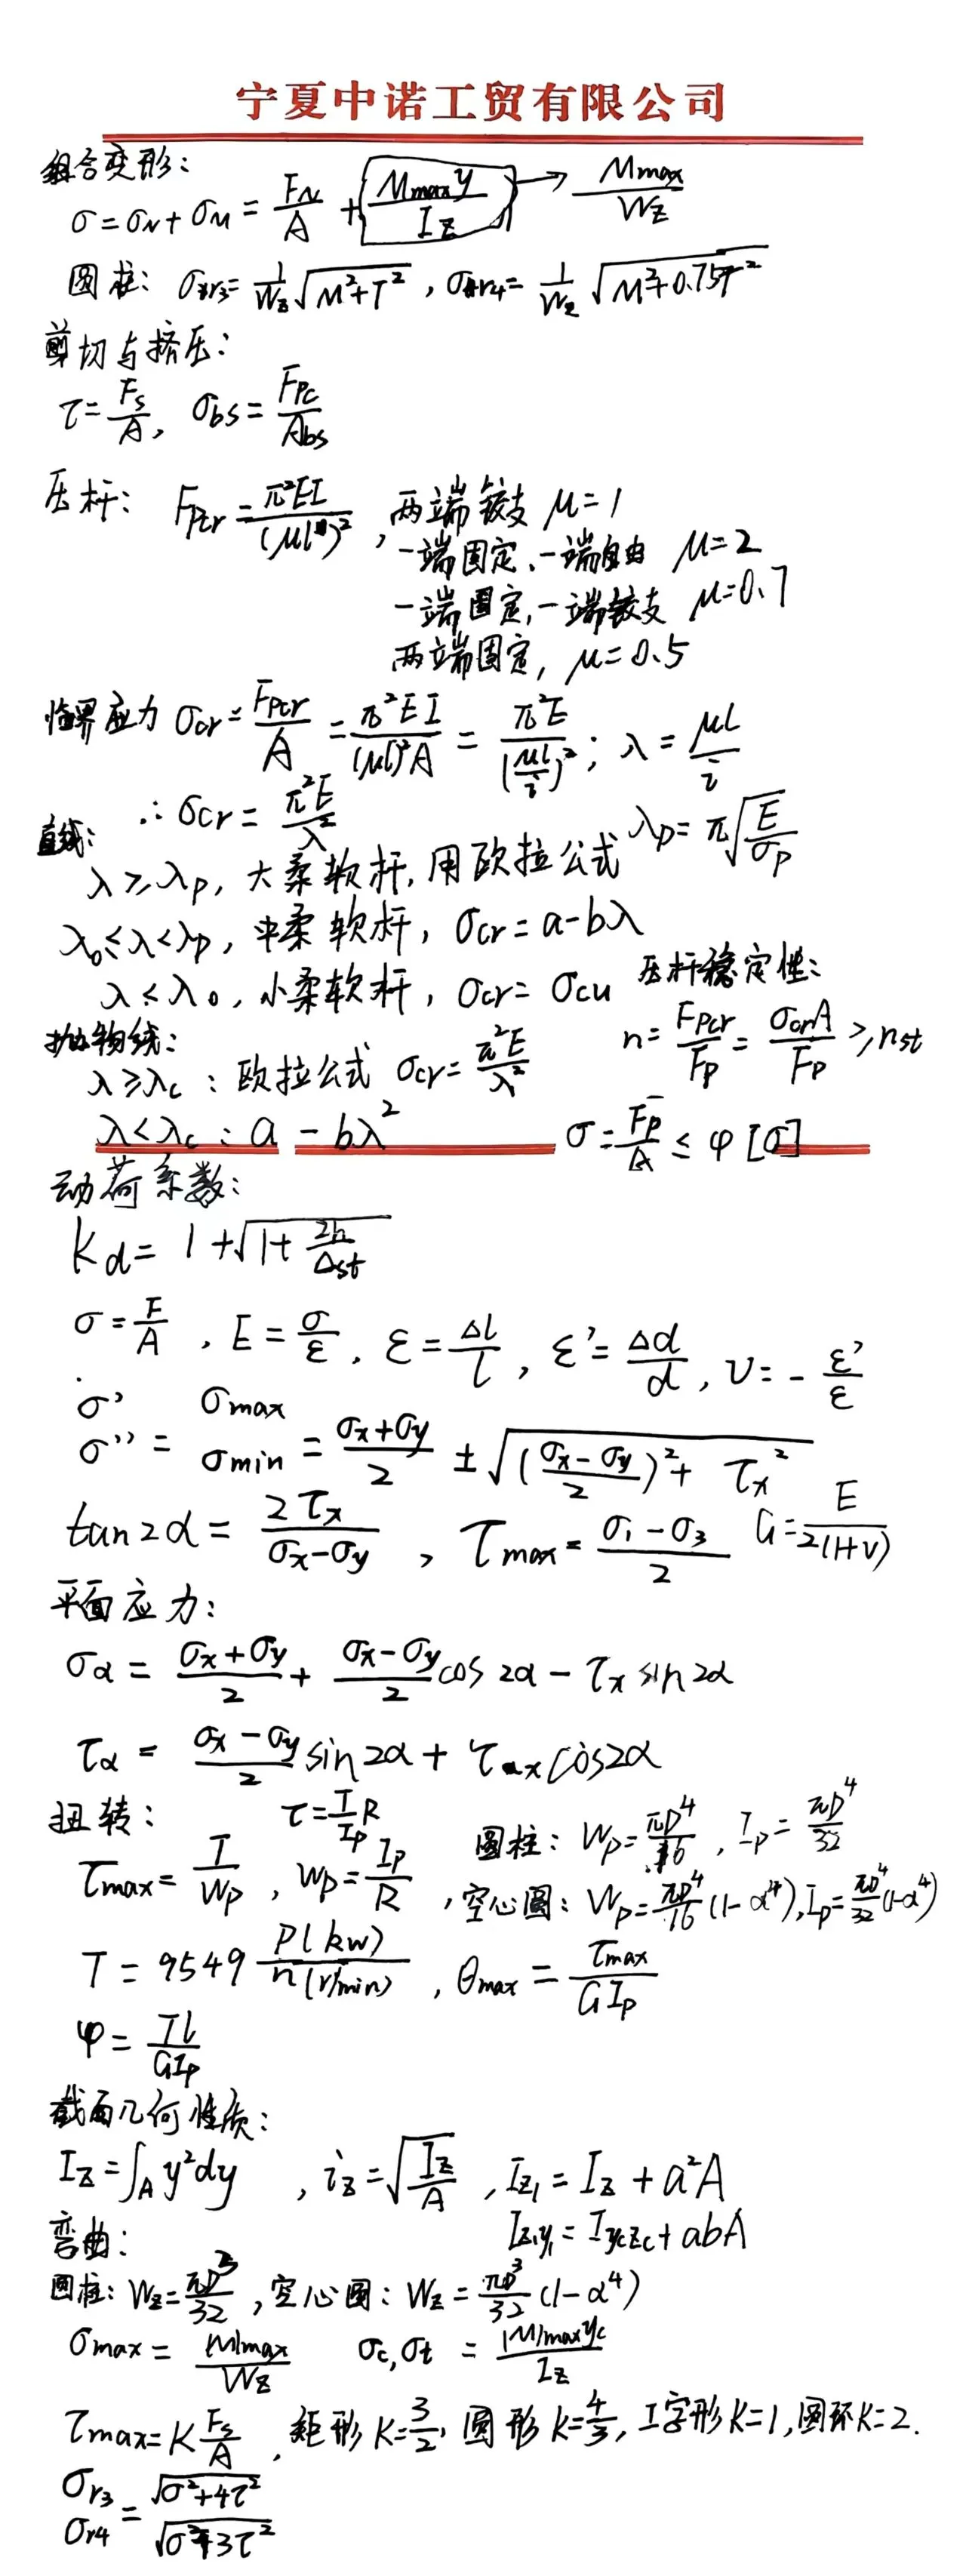 宁夏中诺工贸有限公司
组合变形：
σ=σN+σM = FN/A + Mmax y/Iz → Mmax/Wz
圆柱：σxr3= 1/Wz √(M²+T²)，σr4= 1/Wz √(M²+0.75T²)
剪切与挤压：
τ=Fs/A，σbs=FPc/Abs
压杆：FPcr=π²EI/(μl)²，两端铰支 μ=1
一端固定、一端自由 μ=2
一端固定，一端铰支 μ=0.7
两端固定，μ=0.5
临界应力 σcr=FPcr/A=π²EI/(μl)²A=π²E/(μl/i)²；λ=μl/i
∴σcr=π²E/λ² λp=π√(E/σp)
直线：
λ≥λp，大柔软杆，用欧拉公式
λ0≤λ<λp，中柔软杆，σcr=a-bλ
λ<λ0，小柔软杆，σcr=σcu
压杆稳定性：
n=FPcr/FP=σcrA/FP≥nst
抛物线：
λ≥λc：欧拉公式 σcr=π²E/λ²
λ<λc：a-bλ²
σ=FP/A≤φ[σ]
动荷系数：
Kd=1+√(1+2h/Δst)
σ=F/A，E=σ/ε，ε=Δl/l，ε'=Δd/d，ν=-ε'/ε
σ' σmax
σ''=σmin=(σx+σy)/2±√(((σx-σy)/2)²+τx²)
tan2α=2τx/(σx-σy)，τmax=(σ1-σ3)/2 G=E/2(1+ν)
平面应力：
σα=(σx+σy)/2+(σx-σy)/2 cos2α-τx sin2α
τα=(σx-σy)/2 sin2α+τx cos2α
扭转： τ=T/Ip R 圆柱：Wp=πD⁴/16，Ip=πD⁴/32
τmax=T/Wp，Wp=Ip/R，空心圆：Wp=πD⁴/16(1-α⁴)，Ip=πD⁴/32(1-α⁴)
T=9549 P(kw)/n(r/min)，θmax=τmax/GIp
φ=Tl/GIp
截面几何性质：
Iz=∫A y²dy，iz=√(Iz/A)，Iz1=Iz+a²A
Iz1y1=Iyczc+abA
弯曲：
圆柱：Wz=πD³/32，空心圆：Wz=πD³/32(1-α⁴)
σmax=|M|max/Wz σc,σt=|M|max yc/Iz
τmax=K Fs/A，矩形K=3/2，圆形K=4/3，工字形K=1，圆环K=2.
σr3=√(σ²+4τ²)
σr4=√(σ²+3τ²)